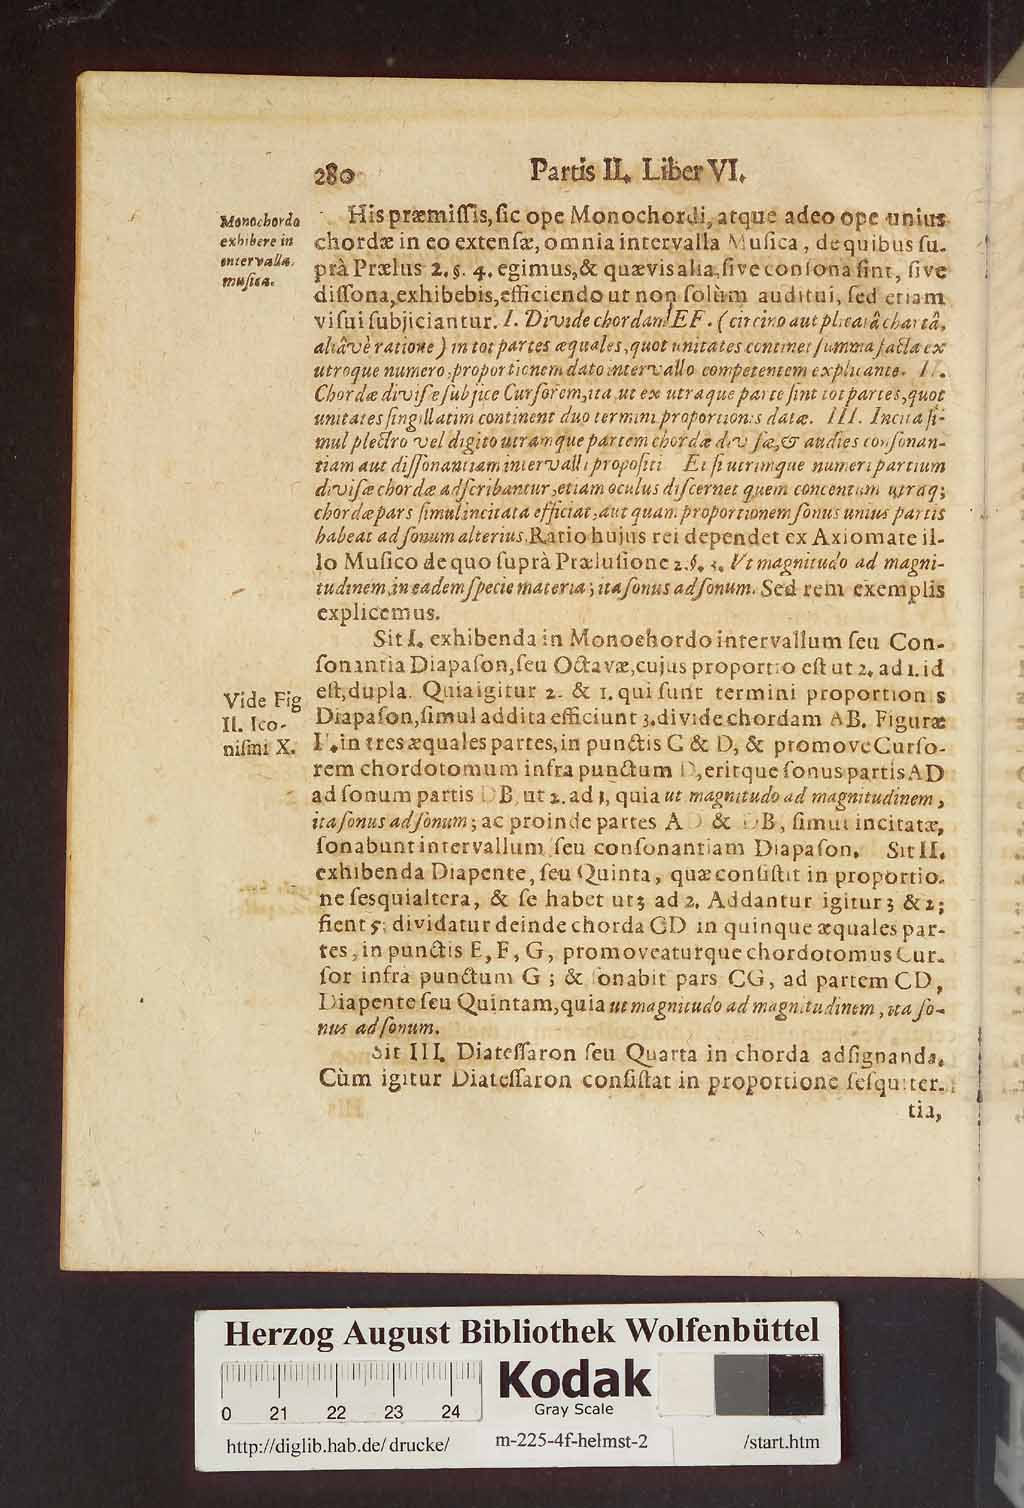 280 Partis II. Liber VI.
Monochordo
exhibere in
intervalla
musica.
His præmiſſis, ſic ope Monochordi, atque adeo ope unius
chordæ in eo extenſæ, omnia intervalla Muſica, de quibus ſu-
prà Prælus 2. §. 4. egimus, & quævis alia, ſive conſona ſint, ſive
diſſona, exhibebis, efficiendo ut non ſolùm auditui, ſed etiam
viſui ſubjiciantur. I. Divide chordam EF. (circino aut plicatâ chartâ,
aliâvè ratione) in tot partes æquales, quot unitates continet ſumma facta ex
utroque numero, proportionem dato intervallo competentem explicante. II.
Chordæ diviſæ ſubjice Curſorem, ita ut ex utraque parte ſint tot partes, quot
unitates ſingillatim continent duo termini proportionis datæ. III. Incita ſi-
mul plectro vel digito utramque partem chordæ diviſæ, & audies conſonan-
tiam aut diſſonantiam intervalli propoſiti Et ſi utrimque numeri partium
diviſæ chordæ adſcribantur, etiam oculus diſcernet quem concentum utraq;
chordæ pars ſimul incitata efficiat, aut quam proportionem ſonus unius partis
habeat ad ſonum alterius. Ratio hujus rei dependet ex Axiomate il-
lo Muſico de quo ſuprà Præluſione 2. §. 3. Vt magnitudo ad magni-
tudinem, in eadem ſpecie materia; ita ſonus ad ſonum. Sed rem exemplis
explicemus.
Sit I. exhibenda in Monochordo intervallum ſeu Con-
ſonantia Diapaſon, ſeu Octavæ, cujus proportio eſt ut 2. ad 1. id
eſt, dupla. Quia igitur 2. & 1. qui ſunt termini proportion s
Vide Fig
II. Ico-
niſmi X.
Diapaſon, ſimul addita efficiunt 3. divide chordam AB. Figuræ
in tres æquales partes, in punctis C & D, & promove Curſo-
rem chordotomum infra punctum D, eritque ſonus partis AD
ad ſonum partis DB, ut 2. ad 1, quia ut magnitudo ad magnitudinem,
ita ſonus ad ſonum; ac proinde partes AD & DB, ſimul incitatæ,
ſonabunt intervallum ſeu conſonantiam Diapaſon. Sit II.
exhibenda Diapente, ſeu Quinta, quæ conſiſtit in proportio-
ne ſesquialtera, & ſe habet ut 3 ad 2. Addantur igitur 3 & 2;
fient 5. dividatur deinde chorda CD in quinque æquales par-
tes, in punctis E, F, G, promoveaturque chordotomus Cur-
ſor infra punctum G; & ſonabit pars CG, ad partem CD,
Diapente ſeu Quintam, quia ut magnitudo ad magnitudinem, ita ſo-
nus ad ſonum.
Sit III. Diateſſaron ſeu Quarta in chorda adſignanda.
Cùm igitur Diateſſaron conſiſtat in proportione ſeſquiter-
tia,
Herzog August Bibliothek Wolfenbüttel
0 21 22 23 24
Kodak
Gray Scale
http://diglib.hab.de/drucke/ m-225-4f-helmst-2 /start.htm